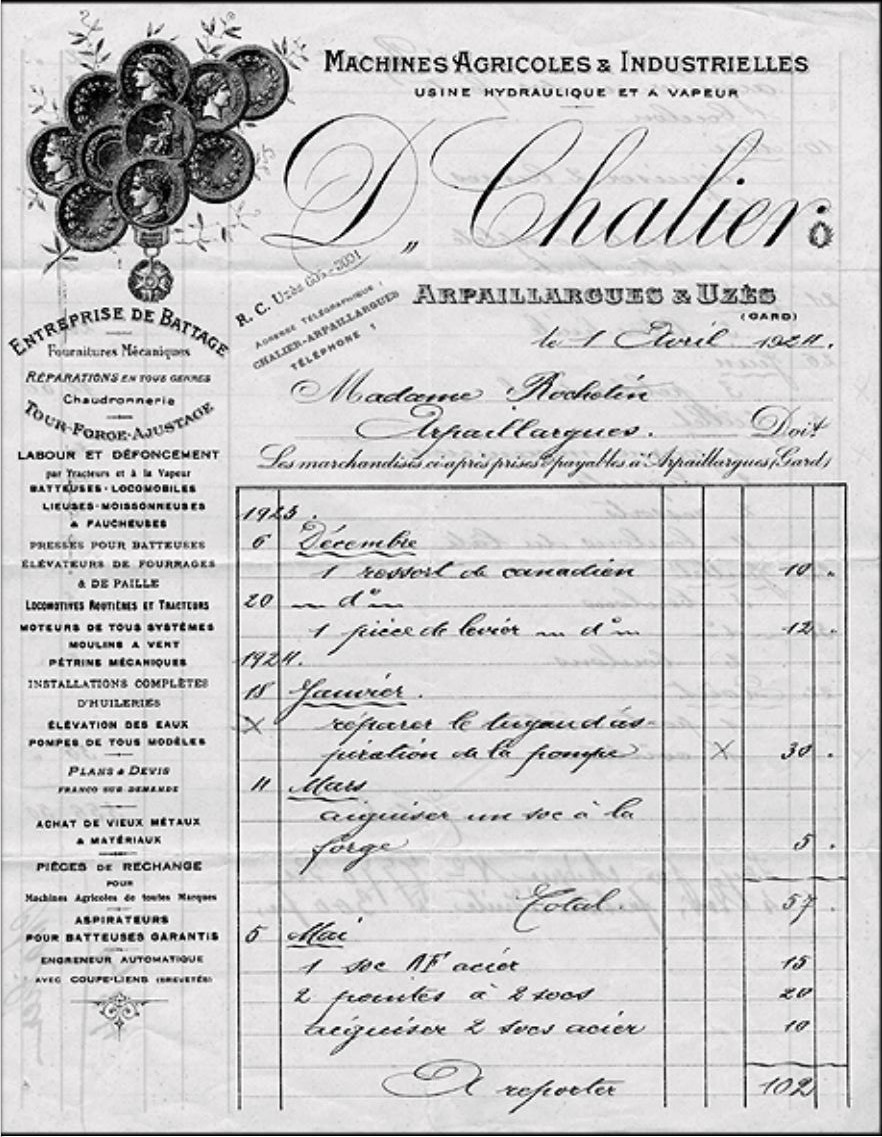 MACHINES AGRICOLES & INDUSTRIELLES
USINE HYDRAULIQUE ET A VAPEUR
D. Chalier
R. C. Uzès 605-3001
ADRESSE TÉLÉGRAPHIQUE :
CHALIER-ARPAILLARGUES
TÉLÉPHONE 1
ARPAILLARGUES & UZÈS
(GARD)
le 1 Avril 1924.
Madame Rochetin
Arpaillargues. Doit
Les marchandises ci-après prises & payables à Arpaillargues (Gard)
ENTREPRISE DE BATTAGE
Fournitures Mécaniques
RÉPARATIONS EN TOUS GENRES
Chaudronnerie
TOUR-FORGE-AJUSTAGE
LABOUR ET DÉFONCEMENT
par Tracteurs et à la Vapeur
BATTEUSES-LOCOMOBILES
LIEUSES-MOISSONNEUSES
& FAUCHEUSES
PRESSES POUR BATTEUSES
ÉLÉVATEURS DE FOURRAGES
& DE PAILLE
LOCOMOTIVES ROUTIÈRES ET TRACTEURS
MOTEURS DE TOUS SYSTÈMES
MOULINS A VENT
PÉTRINS MÉCANIQUES
INSTALLATIONS COMPLÈTES
D'HUILERIES
ÉLÉVATION DES EAUX
POMPES DE TOUS MODÈLES
PLANS & DEVIS
FRANCO SUR DEMANDE
ACHAT DE VIEUX MÉTAUX
& MATÉRIAUX
PIÈCES DE RECHANGE
POUR
Machines Agricoles de toutes Marques
ASPIRATEURS
POUR BATTEUSES GARANTIS
ENGRENEUR AUTOMATIQUE
AVEC COUPE-LIENS (BREVETÉS)
1923.
6 Décembre
1 ressort de canadien 10.
20 — d° —
1 pièce de levier — d° — 12.
1924.
18 Janvier.
X réparer le tuyau d'as-
piration de la pompe X 30.
11 Mars
aiguiser un soc à la
forge 5.
Total 57.
5 Mai
1 soc acier 15
2 pointes à 2 socs 20
aiguiser 2 socs acier 10
A reporter 102